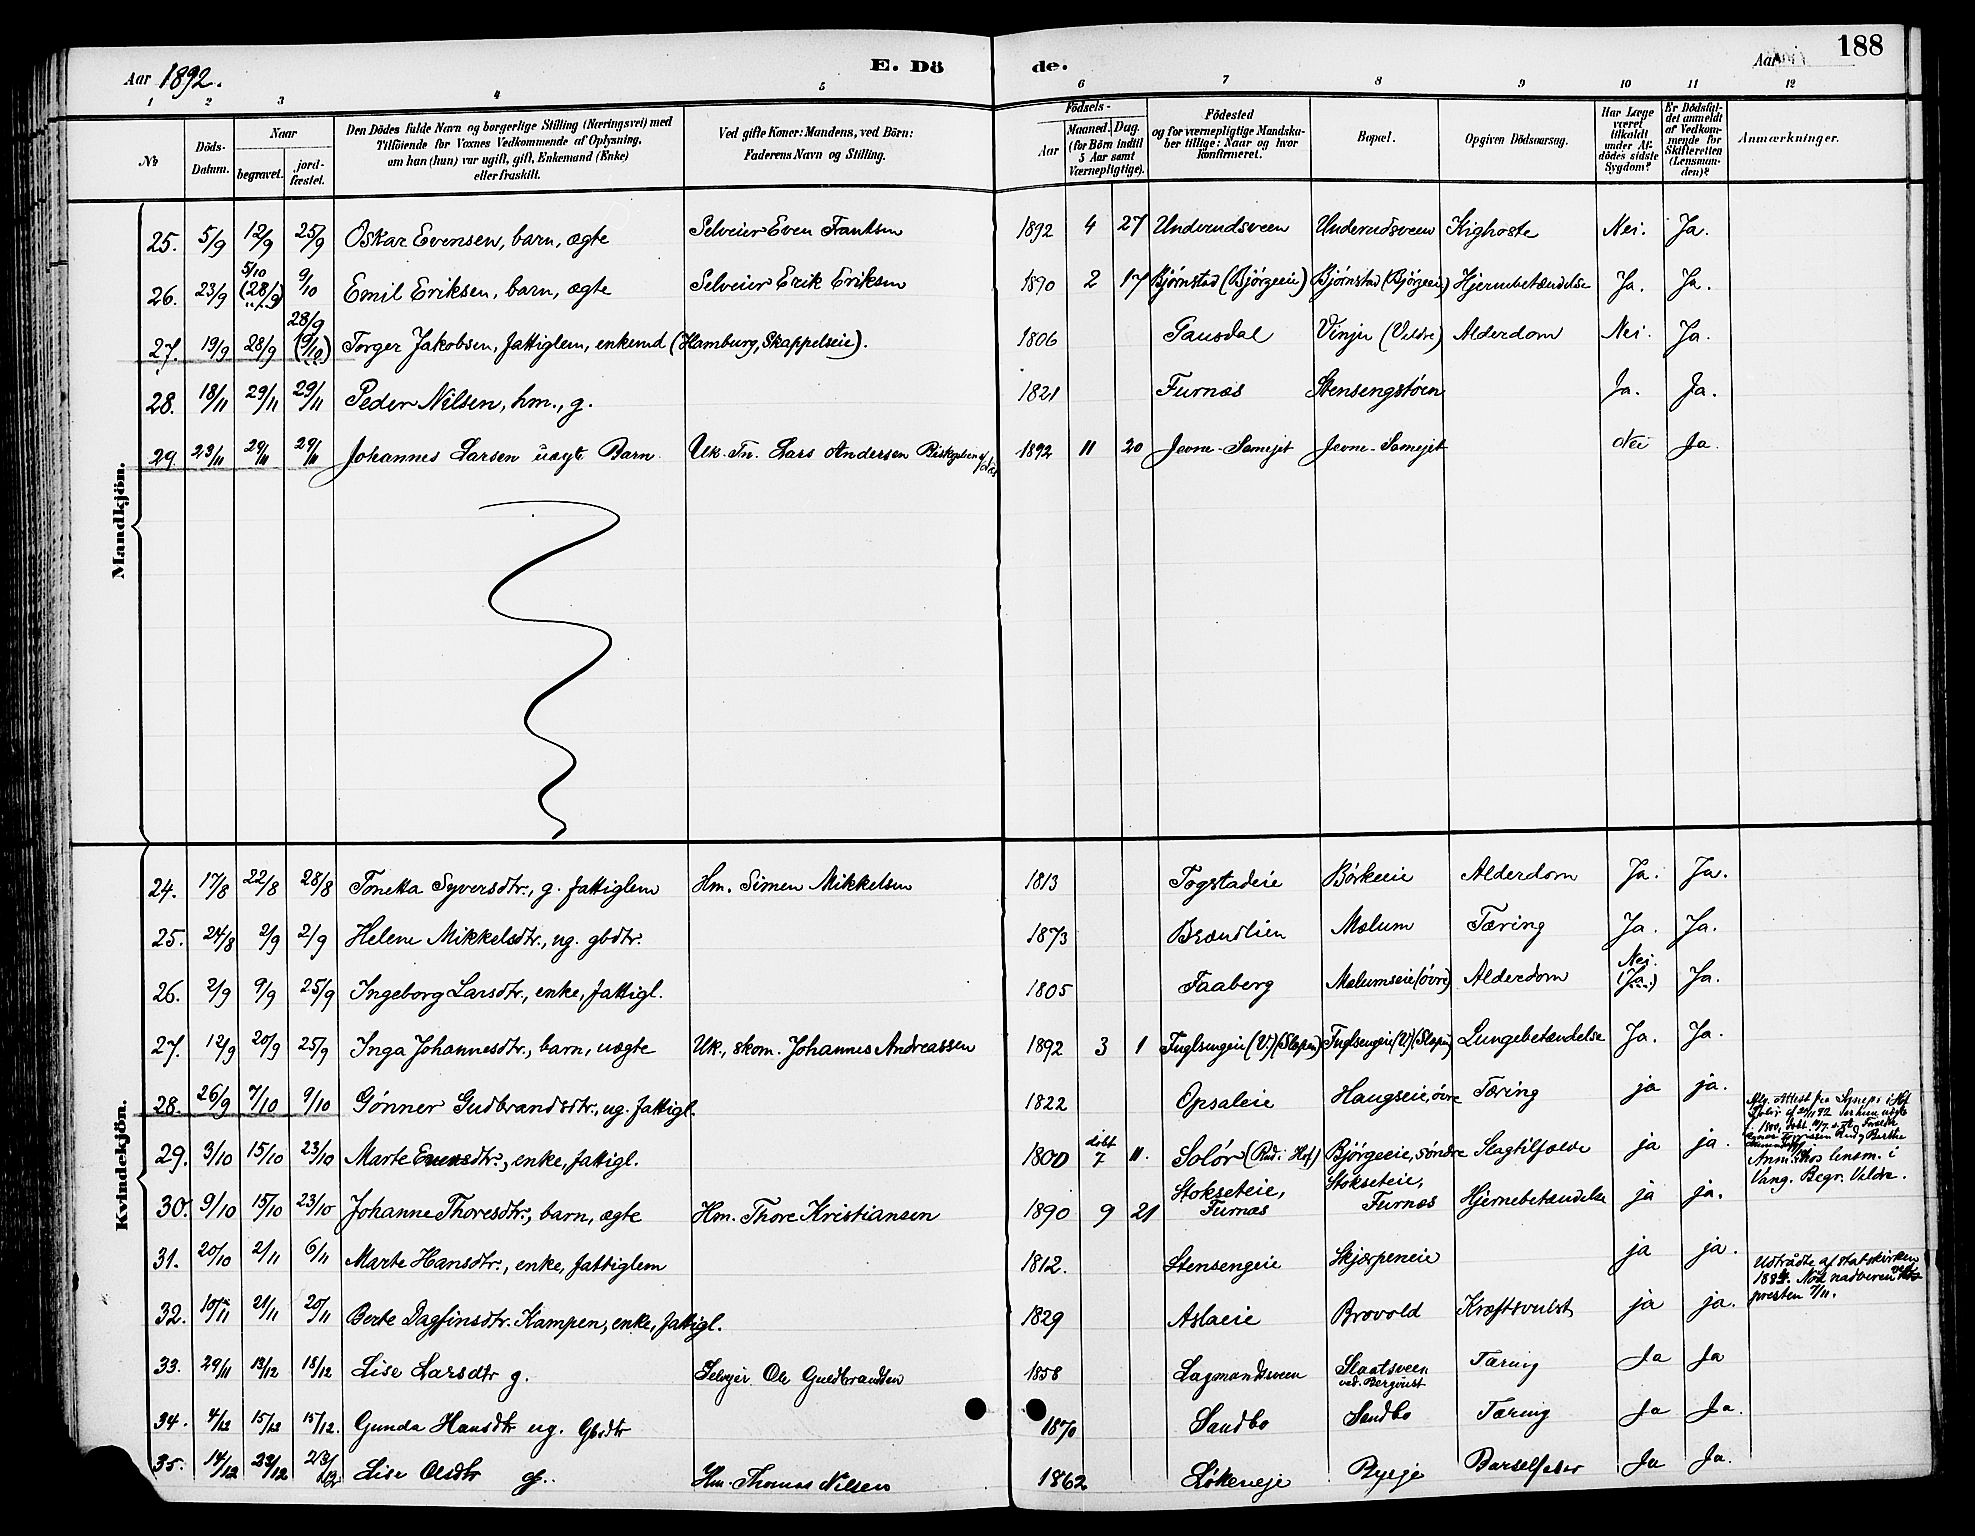 188
Aar 1892. E. Dö de. Aar
1 2 3 4 5 6 7 8 9 10 11 12
No
Döds-Datum.
Naar
begravet.
jord-fæstet.
Den Dödes fulde Navn og borgerlige Stilling (Næringsvei) med
Tilföiende for Voxnes Vedkommende af Oplysning,
om han (hun) var ugift, gift, Enkemand (Enke)
eller fraskilt.
Ved gifte Koner: Mandens, ved Börn:
Faderens Navn og Stilling.
Födsels-
Aar
Maaned. Dag.
(for Börn indtil
5 Aar samt
Værnepligtige).
Födested
og for værnepligtige Mandska-
ber tillige: Naar og hvor
konfirmeret.
Bopæl.
Opgiven Dödsaarsag.
Har Læge
været
tilkaldt
under Af-
dödes sidste
Sygdom?
Er Dödsfal-
det anmeldt
af Vedkom-
mende for
Skifteretten
(Lensman-
den)?
Anmærkninger.
Mandkjön.
25. 5/9 12/9 25/9 Oskar Evensen, barn, ægte Selveier Even Frantsen 1892 4 27 Underudsveen Underudsveen Kighoste Nei. Ja.
26. 23/9 5/10 (28/9) 9/10 Emil Eriksen, barn, ægte Selveier Erik Eriksen 1890 2 17 Bjørnstad (Bjørgeeie) Bjørnstad (Bjørgeeie) Hjernebetændelse Ja. Ja.
27. 19/9 28/9 28/9 (9/10) Torger Jakobsen, fattiglem, enkemd (Hamburg, Skappelseie). 1806 Gausdal Vinju (Veldre) Alderdom Nei. Ja.
28. 18/11 29/11 29/11 Peder Nilsen, hm., g. 1821 Furnæs Stensengstøen Ja. Ja.
29 23/11 29/11 29/11 Johannes Larsen uægt. Barn. Uk. Tn. Lars Andersen 1892 11 20 Jevne-Samejet Jevne-Samejet Nei Ja.
Kvindekjön.
24. 17/8 22/8 28/8 Tonetta Syversdtr., g. fattiglem Hm. Simen Mikkelsen 1813 Togstadeie Børkeeie Alderdom Ja. Ja.
25. 24/8 2/9 2/9 Helene Mikkelsdtr., ug. gbdtr. 1873 Brændlien Mælum Tæring Ja. Ja.
26. 2/9 9/9 25/9 Ingeborg Larsdtr., enke, fattigl. 1805 Faaberg Mælumseie (øvre) Alderdom Nei. (Ja.) Ja.
27. 12/9 20/9 25/9 Inga Johannesdtr., barn, uægte Uk., skom. Johannes Andreassen 1892 3 1 Fuglsengeie (V.) (Slapen) Fuglsengeie (V.) (Slapen) Lungebetændelse Ja. Ja.
28. 26/9 7/10 9/10 Gønner Gudbrandsdtr., ug. fattigl. 1822 Opsaleie Haugseie, øvre Tæring ja ja.
29. 3/10 15/10 23/10 Marte Evensdtr., enke, fattigl. 1800 døbt 7 11. Solør (Rud i Hof) Bjørgeeie, søndre Slagtilfælde ja ja.
Anm. hos lensm. i
Vang. Begr. Veldre.
30. 9/10 15/10 23/10 Johanne Thoresdtr., barn, ægte Hm. Thore Kristiansen 1890 9 21 Stokseteie, Furnæs Stokseteie, Furnæs Hjernebetændelse ja ja.
31. 20/10 2/11 6/11 Marte Hansdtr., enke, fattiglem 1812. Stensengeie Skjærpeneie ja ja.
32. 10/11 21/11 20/11 Berte Dagfinsdtr. Kampen, enke, fattigl. 1829 Aslaeie Brovold Kræftsvulst ja ja.
Udtrådte af statskirken
188. Nöt nadveren
presten 7/11.
33. 29/11 13/12 18/12 Lise Larsdtr g. Selvejer Ole Guldbrandsen 1858 Lagmandsveen Slaatsveen ved Bergvust Tæring Ja Ja
34. 4/12 15/12 15/12. Gunda Hansdtr ug. Gbdtr 1870 Sandbo Sandbo Tæring Ja Ja.
35. 14/12 23/12 23/12 Lise Olsdtr g. Hm. Thomas Nilsen 1862 Løkeneje Byeje Barselfeber Ja Ja.